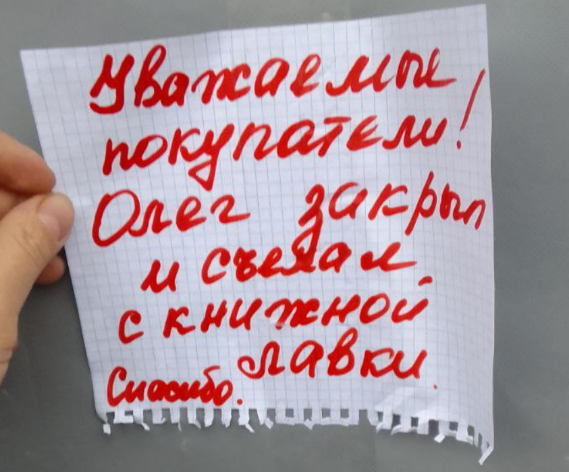 Уважаемые
покупатели!
Олег закрыл
и съехал
с книжной
лавки.
Спасибо.